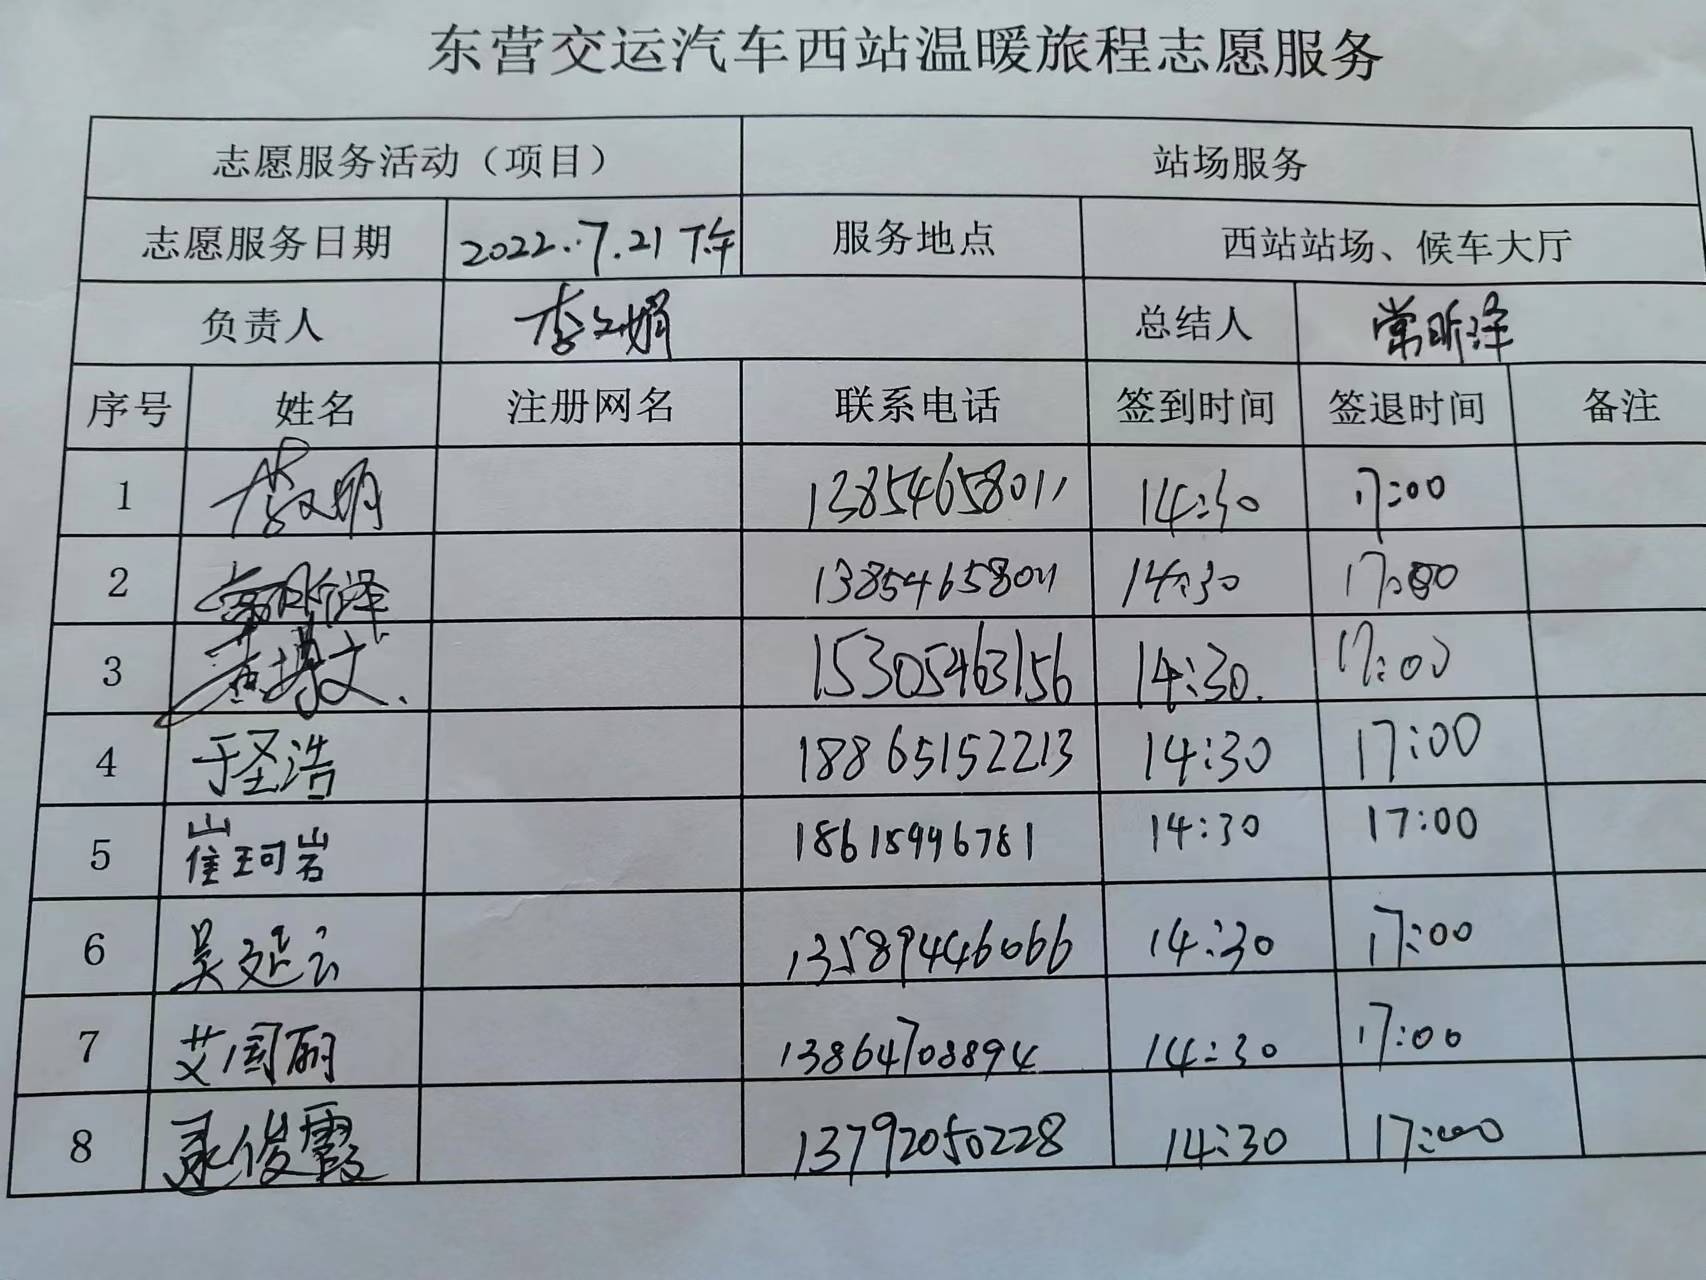 东营交运汽车西站温暖旅程志愿服务
志愿服务活动（项目） 站场服务
志愿服务日期 2022.7.21下午 服务地点 西站站场、候车大厅
负责人 李文娟 总结人 常昕泽
序号 姓名 注册网名 联系电话 签到时间 签退时间 备注
1 李文娟 13854658011 14:30 17:00
2 常昕泽 13854658011 14:30 17:00
3 15305463156 14:30 17:00
4 于圣浩 18865152213 14:30 17:00
5 崔珂岩 18615996781 14:30 17:00
6 吴延云 13589446066 14:30 17:00
7 艾国丽 13864708894 14:30 17:00
8 俊霞 13792050228 14:30 17:00